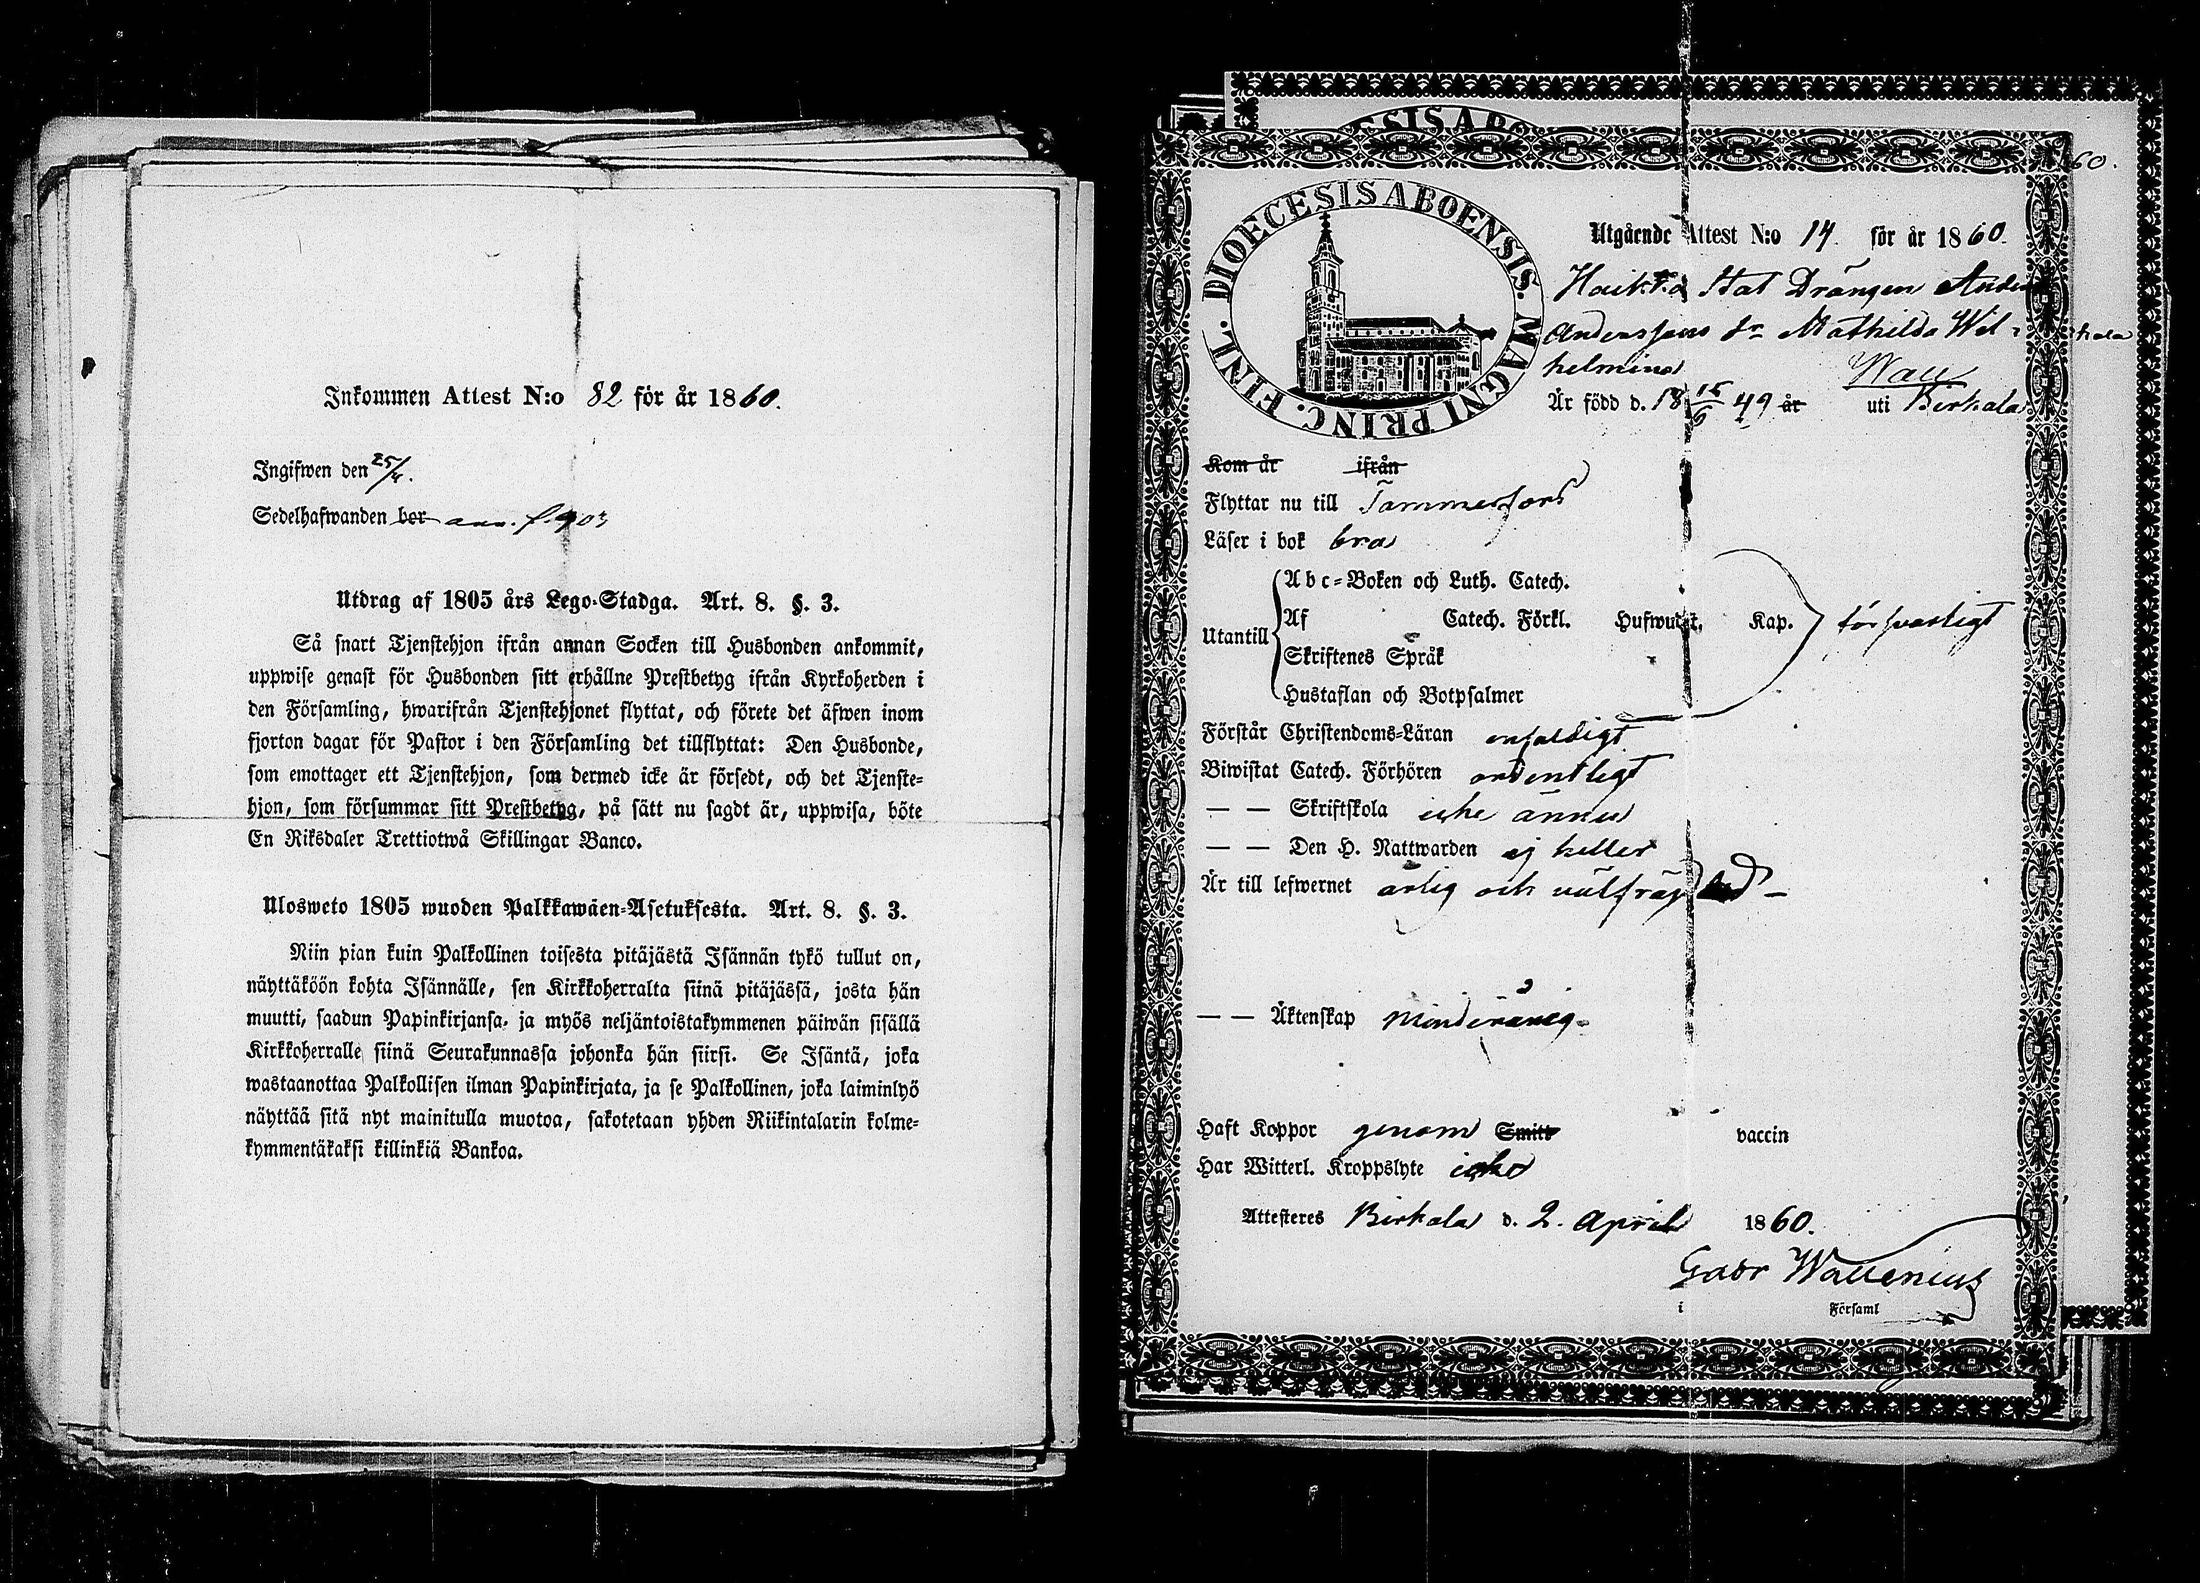 Inkommen Attest N:o 82 för år 1860.
Ingifwen den 25/4.
Sedelhafwanden bor ann. f. 903
Utdrag af 1805 års Lego-Stadga. Art. 8. §. 3.
Så snart Tjenstehjon ifrån annan Socken till Husbonden ankommit,
uppwise genast för Husbonden sitt erhållne Prestbetyg ifrån Kyrkoherden i
den Församling, hwarifrån Tjenstehjonet flyttat, och förete det äfwen inom
fjorton dagar för Pastor i den Församling det tillflyttat: Den Husbonde,
som emottager ett Tjenstehjon, som dermed icke är försedt, och det Tjenste-
hjon, som försummar sitt Prestbetyg, på sätt nu sagdt är, uppwisa, böte
En Riksdaler Trettiotwå Skillingar Banco.
Ulosweto 1805 wuoden Palkkawäen-Asetuksesta. Art. 8. §. 3.
Niin pian kuin Palkollinen toisesta pitäjästä Isännän tykö tullut on,
näyttäköön kohta Isännälle, sen Kirkkoherralta siinä pitäjässä, josta hän
muutti, saadun Papinkirjansa, ja myös neljäntoistakymmenen päiwän sisällä
Kirkkoherralle siinä Seurakunnassa johonka hän siirsi. Se Isäntä, joka
wastaanottaa Palkollisen ilman Papinkirjata, ja se Palkollinen, joka laiminlyö
näyttää sitä nyt mainitulla muotoa, sakotetaan yhden Riikintalarin kolme-
kymmentäkaksi killinkiä Bankoa.
ESIS ABO
60.
DIOECESIS ABOENSIS. MAGNI PRINC. FINL.
Utgående Attest N:o 14 för år 1860.
Stat Drängen Anders
Anderssons dr Mathilda Wil-
helmina Wall
Är född d. 18 15/6 49 år uti Birkala
Kom år ifrån
Flyttar nu till Tammerfors
Läser i bok bra
Utantill
Abc-Boken och Luth. Catech.
Af Catech. Förkl. Hufwudst. Kap. försvarligt
Skriftenes Språk
Hustaflan och Botpsalmer
Förstår Christendoms-Läran enfaldigt
Biwistat Catech. Förhören ordentligt
— — Skriftskola icke ännu
— — Den H. Nattwarden ej heller
Är till lefwernet ärlig och välfräjdad –
— — Äktenskap minderårig
Haft Koppor genom Smitt vaccin
Har Witterl. Kroppslyte icke
Attesteres Birkala d. 2. April 1860.
Gabr Wallenius
i Församl